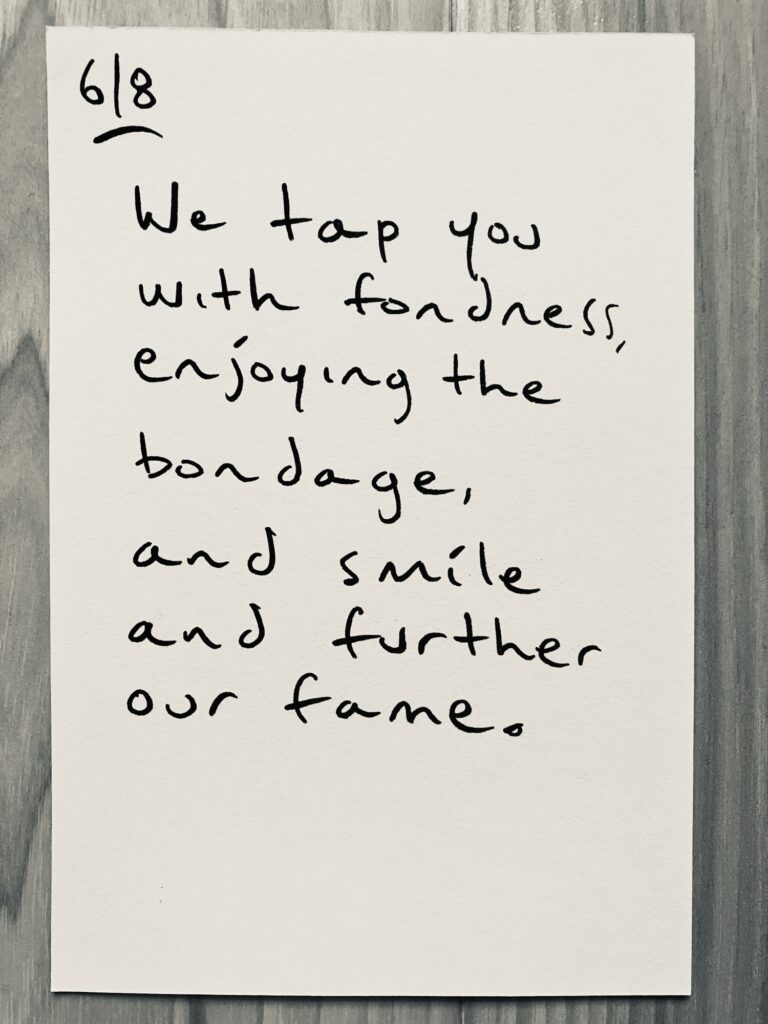 6/8
We tap you
with fondness,
enjoying the
bondage,
and smile
and further
our fame.